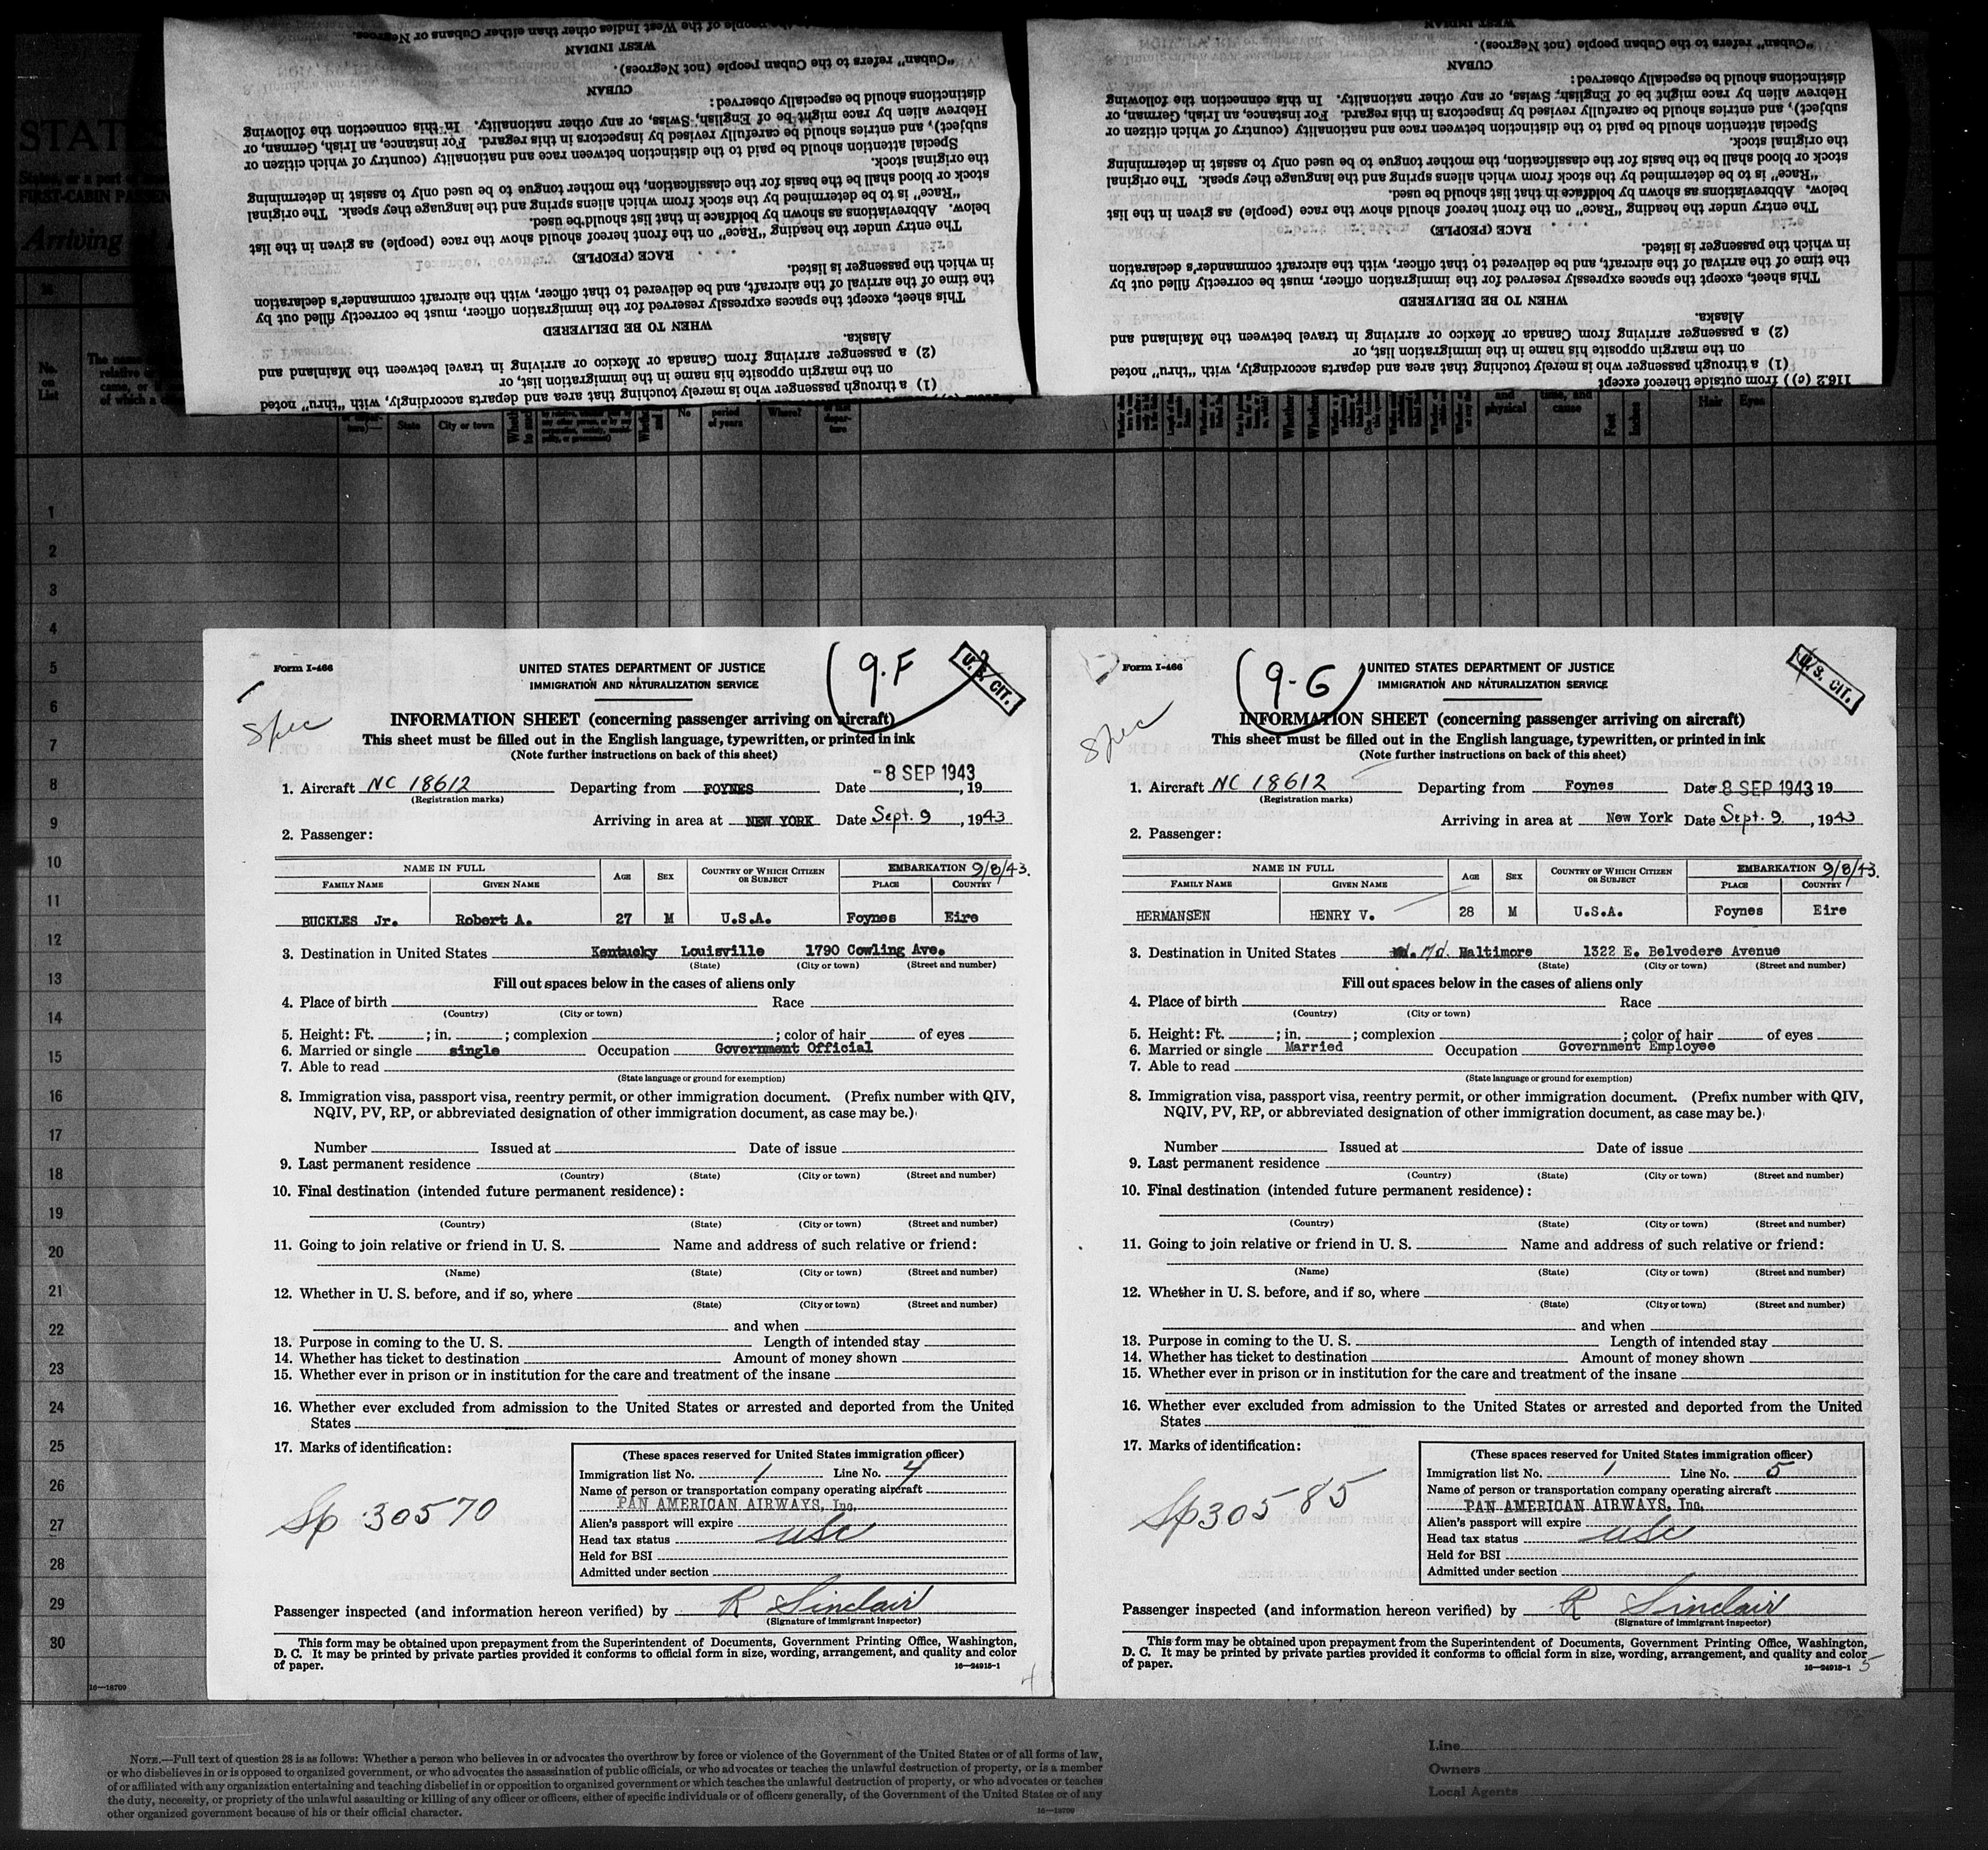 people of the West Indies other than either Cubans or Negroes.
WEST INDIAN
"Cuban" refers to the Cuban people (not Negroes).
CUBAN
distinctions should be especially observed:
Hebrew alien by race might be of English, Swiss, or any other nationality. In this connection the following
subject), and entries should be carefully revised by inspectors in this regard. For instance, an Irish, German, or
Special attention should be paid to the distinction between race and nationality (country of which citizen or
the original stock.
stock or blood shall be the basis for the classification, the mother tongue to be used only to assist in determining
"Race" is to be determined by the stock from which aliens spring and the language they speak. The original
below. Abbreviations as shown by boldface in that list should be used.
The entry under the heading "Race" on the front hereof should show the race (people) as given in the list
RACE (PEOPLE)
in which the passenger is listed.
the time of the arrival of the aircraft, and be delivered to that officer, with the aircraft commander's declaration
This sheet, except the spaces expressly reserved for the immigration officer, must be correctly filled out by
WHEN TO BE DELIVERED
Alaska.
(2) a passenger arriving from Canada or Mexico or arriving in travel between the Mainland and
on the margin opposite his name in the immigration list, or
(1) a through passenger who is merely touching that area and departs accordingly, with "thru" noted
WEST INDIAN
"Cuban" refers to the Cuban people (not Negroes).
CUBAN
distinctions should be especially observed:
Hebrew alien by race might be of English, Swiss, or any other nationality. In this connection the following
subject), and entries should be carefully revised by inspectors in this regard. For instance, an Irish, German, or
Special attention should be paid to the distinction between race and nationality (country of which citizen or
the original stock.
stock or blood shall be the basis for the classification, the mother tongue to be used only to assist in determining
"Race" is to be determined by the stock from which aliens spring and the language they speak. The original
below. Abbreviations as shown by boldface in that list should be used.
The entry under the heading "Race" on the front hereof should show the race (people) as given in the list
RACE (PEOPLE)
in which the passenger is listed.
the time of the arrival of the aircraft, and be delivered to that officer, with the aircraft commander's declaration
This sheet, except the spaces expressly reserved for the immigration officer, must be correctly filled out by
WHEN TO BE DELIVERED
Alaska.
(2) a passenger arriving from Canada or Mexico or arriving in travel between the Mainland and
on the margin opposite his name in the immigration list, or
(1) a through passenger who is merely touching that area and departs accordingly, with "thru" noted
116.2 (c)) from outside thereof except
STATE
FIRST-CABIN PASSEN
Arriving
No. on List
State City or town No period of years Where?
and physical time, and cause Feet Inches Hair Eyes
1
2
3
4
5
6
7
8
9
10
11
12
13
14
15
16
17
18
19
20
21
22
23
24
25
26
27
28
29
30
16—18709
Form I-466
9.F
U.S. CIT.
Spec
UNITED STATES DEPARTMENT OF JUSTICE
IMMIGRATION AND NATURALIZATION SERVICE
INFORMATION SHEET (concerning passenger arriving on aircraft)
This sheet must be filled out in the English language, typewritten, or printed in ink
(Note further instructions on back of this sheet)
-8 SEP 1943
1. Aircraft NC 18612 Departing from FOYNES Date , 19
(Registration marks)
Arriving in area at NEW YORK Date Sept. 9, 1943
2. Passenger:
NAME IN FULL AGE SEX COUNTRY OF WHICH CITIZEN OR SUBJECT EMBARKATION 9/8/43.
FAMILY NAME GIVEN NAME PLACE COUNTRY
BUCKLES Jr. Robert A. 27 M U.S.A. Foynes Eire
3. Destination in United States Kentucky Louisville 1790 Cowling Ave.
(State) (City or town) (Street and number)
Fill out spaces below in the cases of aliens only
4. Place of birth Race
(Country) (City or town)
5. Height: Ft. ; in. ; complexion ; color of hair of eyes
6. Married or single single Occupation Government Official
7. Able to read
(State language or ground for exemption)
8. Immigration visa, passport visa, reentry permit, or other immigration document. (Prefix number with QIV,
NQIV, PV, RP, or abbreviated designation of other immigration document, as case may be.)
Number Issued at Date of issue
9. Last permanent residence
(Country) (State) (City or town) (Street and number)
10. Final destination (intended future permanent residence):
(Country) (State) (City or town) (Street and number)
11. Going to join relative or friend in U. S. Name and address of such relative or friend:
(Name) (State) (City or town) (Street and number)
12. Whether in U. S. before, and if so, where
(State) (City or town) (Street and number)
and when
13. Purpose in coming to the U. S. Length of intended stay
14. Whether has ticket to destination Amount of money shown
15. Whether ever in prison or in institution for the care and treatment of the insane
16. Whether ever excluded from admission to the United States or arrested and deported from the United
States
17. Marks of identification:
Sp 30570
(These spaces reserved for United States immigration officer)
Immigration list No. 1 Line No. 4
Name of person or transportation company operating aircraft
PAN AMERICAN AIRWAYS, Inc.
Alien's passport will expire
Head tax status usc
Held for BSI
Admitted under section
Passenger inspected (and information hereon verified) by R Sinclair
(Signature of immigrant inspector)
This form may be obtained upon prepayment from the Superintendent of Documents, Government Printing Office, Washington,
D. C. It may be printed by private parties provided it conforms to official form in size, wording, arrangement, and quality and color
of paper. 16—24915-1
4
Form I-466
9-G
U.S. CIT.
Spec
UNITED STATES DEPARTMENT OF JUSTICE
IMMIGRATION AND NATURALIZATION SERVICE
INFORMATION SHEET (concerning passenger arriving on aircraft)
This sheet must be filled out in the English language, typewritten, or printed in ink
(Note further instructions on back of this sheet)
1. Aircraft NC 18612 Departing from Foynes Date 8 SEP 1943 19
(Registration marks)
Arriving in area at New York Date Sept. 9, 1943
2. Passenger:
NAME IN FULL AGE SEX COUNTRY OF WHICH CITIZEN OR SUBJECT EMBARKATION 9/8/43.
FAMILY NAME GIVEN NAME PLACE COUNTRY
HERMANSEN HENRY V. 28 M U.S.A. Foynes Eire
3. Destination in United States Md. Baltimore 1322 E. Belvedere Avenue
(State) (City or town) (Street and number)
Fill out spaces below in the cases of aliens only
4. Place of birth Race
(Country) (City or town)
5. Height: Ft. ; in. ; complexion ; color of hair of eyes
6. Married or single Married Occupation Government Employee
7. Able to read
(State language or ground for exemption)
8. Immigration visa, passport visa, reentry permit, or other immigration document. (Prefix number with QIV,
NQIV, PV, RP, or abbreviated designation of other immigration document, as case may be.)
Number Issued at Date of issue
9. Last permanent residence
(Country) (State) (City or town) (Street and number)
10. Final destination (intended future permanent residence):
(Country) (State) (City or town) (Street and number)
11. Going to join relative or friend in U. S. Name and address of such relative or friend:
(Name) (State) (City or town) (Street and number)
12. Whether in U. S. before, and if so, where
(State) (City or town) (Street and number)
and when
13. Purpose in coming to the U. S. Length of intended stay
14. Whether has ticket to destination Amount of money shown
15. Whether ever in prison or in institution for the care and treatment of the insane
16. Whether ever excluded from admission to the United States or arrested and deported from the United
States
17. Marks of identification:
Sp 30585
(These spaces reserved for United States immigration officer)
Immigration list No. 1 Line No. 5
Name of person or transportation company operating aircraft
PAN AMERICAN AIRWAYS, Inc.
Alien's passport will expire
Head tax status usc
Held for BSI
Admitted under section
Passenger inspected (and information hereon verified) by R Sinclair
(Signature of immigrant inspector)
This form may be obtained upon prepayment from the Superintendent of Documents, Government Printing Office, Washington,
D. C. It may be printed by private parties provided it conforms to official form in size, wording, arrangement, and quality and color
of paper. 16—24915-1
5
NOTE.—Full text of question 28 is as follows: Whether a person who believes in or advocates the overthrow by force or violence of the Government of the United States or of all forms of law,
or who disbelieves in or is opposed to organized government, or who advocates the assassination of public officials, or who advocates or teaches the unlawful destruction of property, or is a member
of or affiliated with any organization entertaining and teaching disbelief in or opposition to organized government or which teaches the unlawful destruction of property, or who advocates or teaches
the duty, necessity, or propriety of the unlawful assaulting or killing of any officer or officers, either of specific individuals or of officers generally, of the Government of the United States or of any
other organized government because of his or their official character. 16—18709
Line
Owners
Local Agents